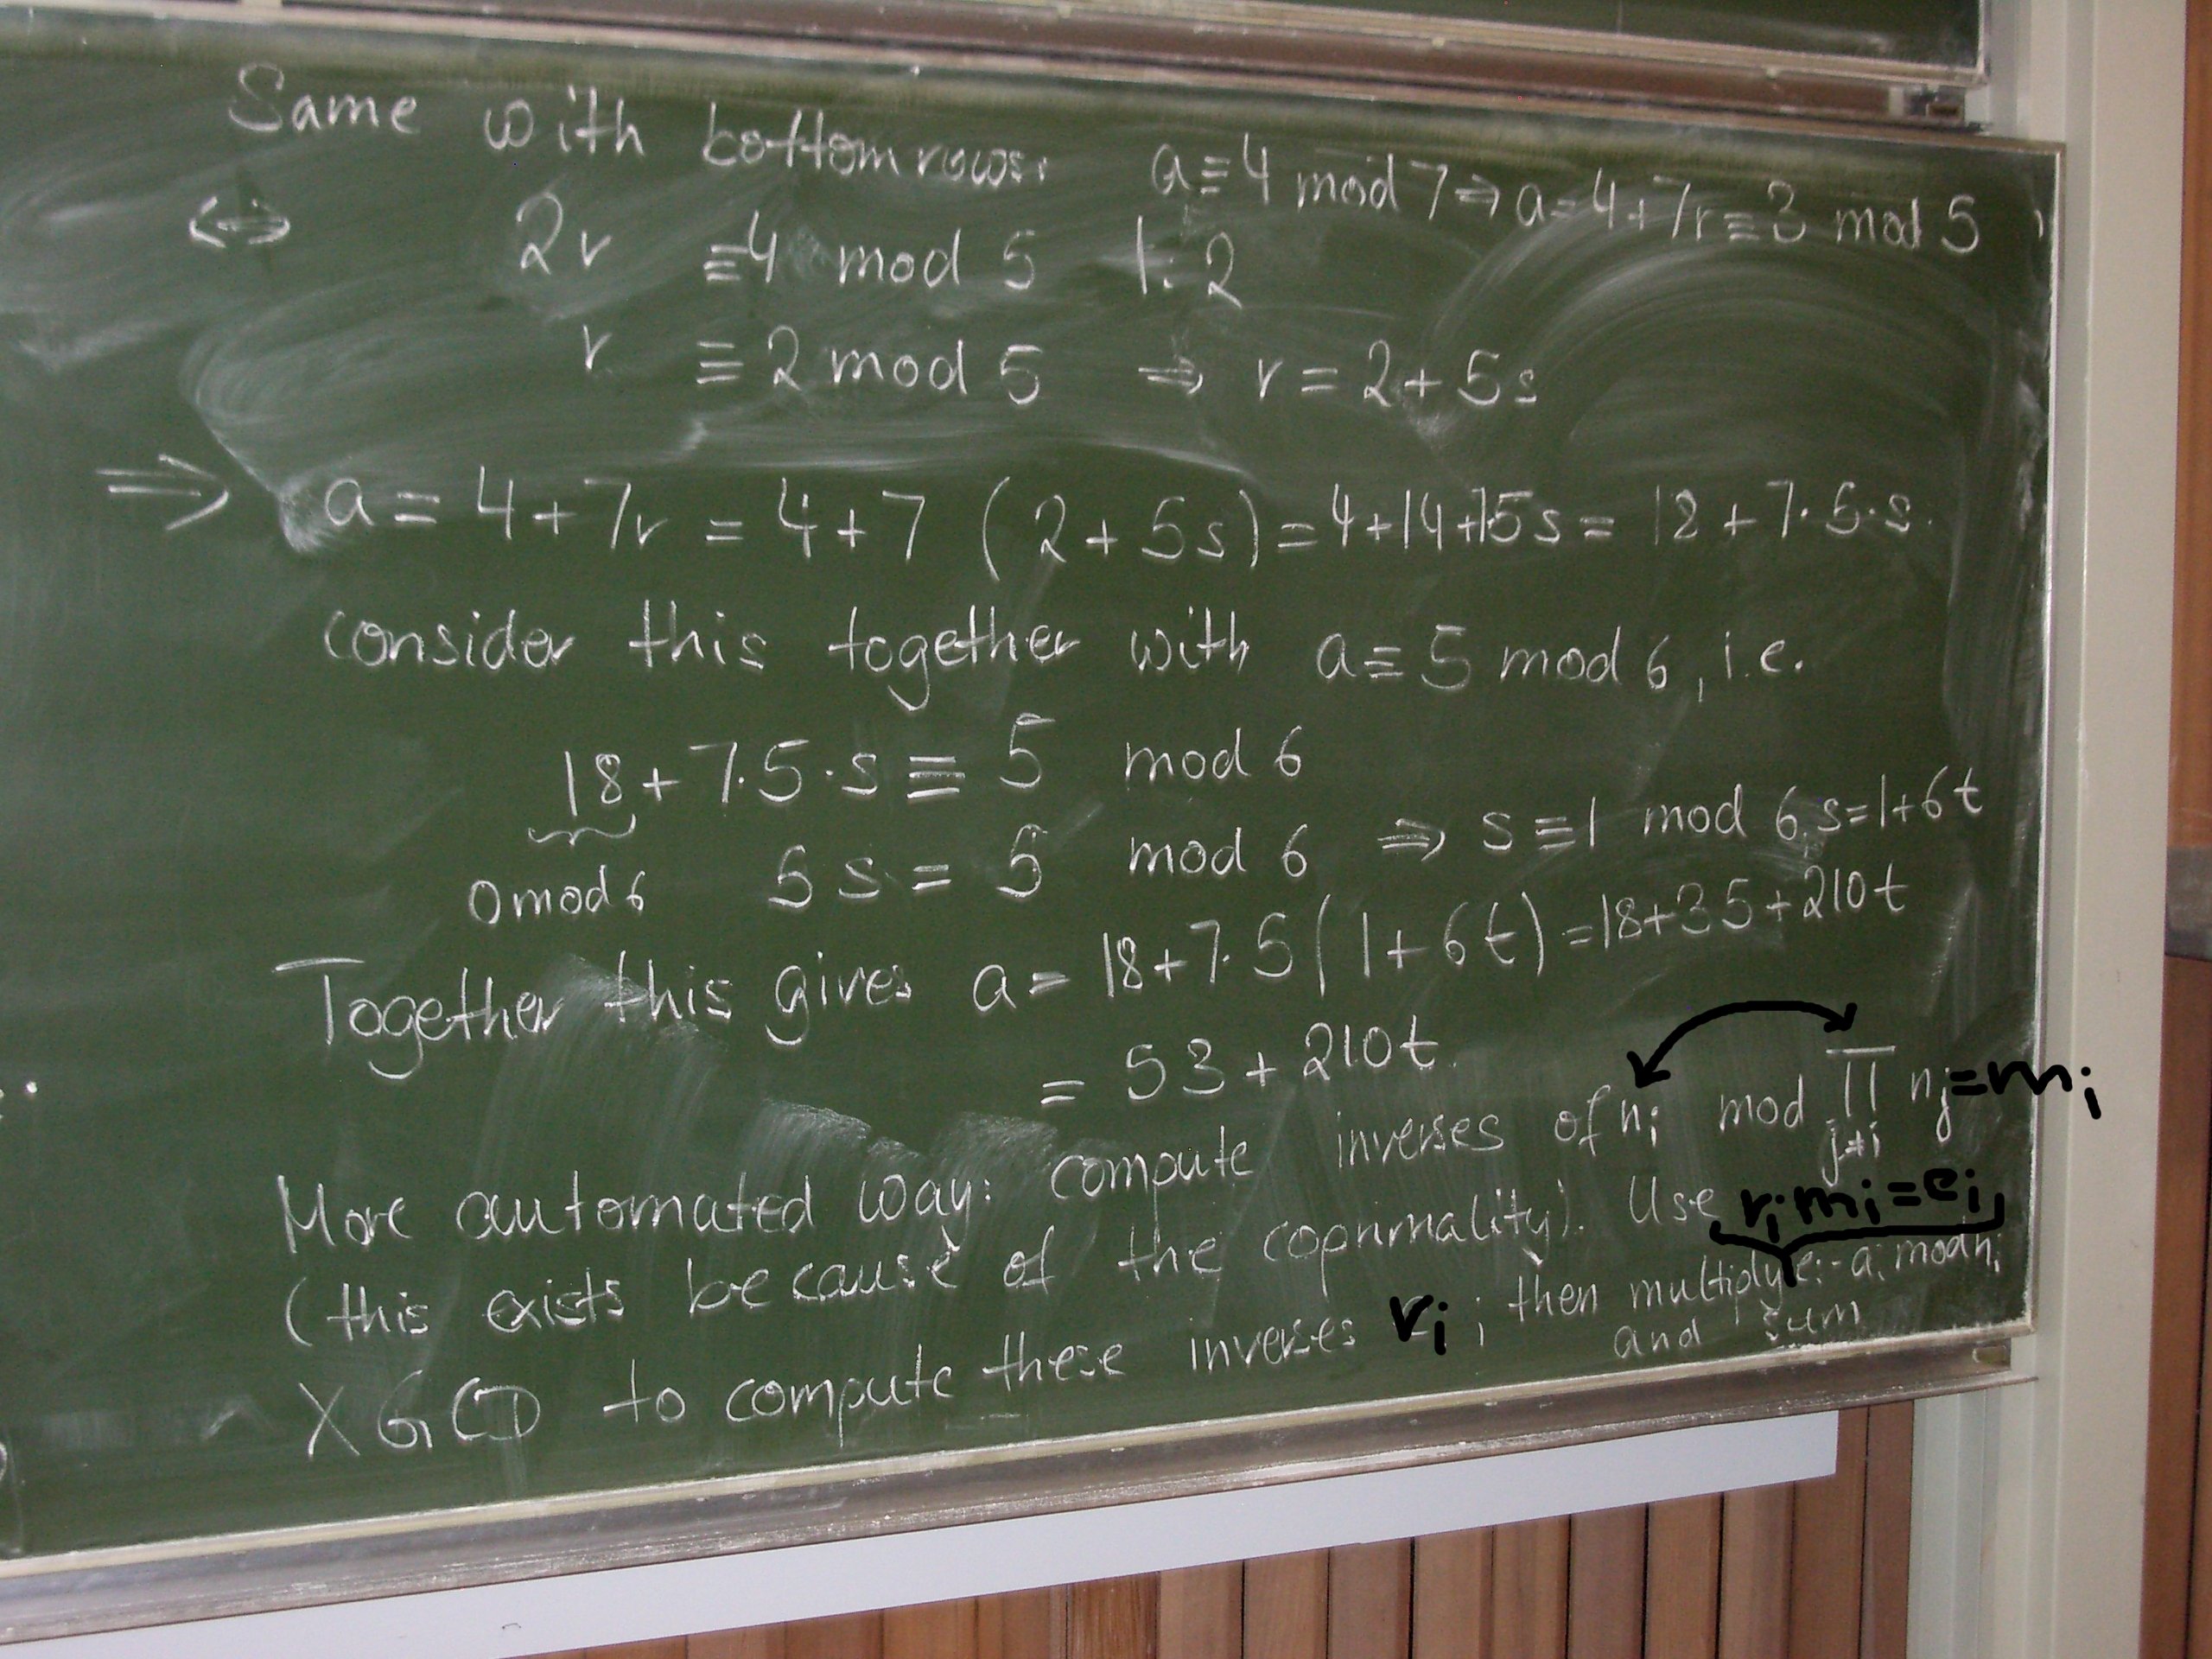 Same with bottom rows: a≡4 mod 7 ⇒ a=4+7r≡3 mod 5
⇔ 2r ≡4 mod 5 |:2
r ≡ 2 mod 5 ⇒ r = 2 + 5s
⇒ a = 4+7r = 4+7 (2+5s) = 4+14+7·5s = 18+7·5·s.
consider this together with a≡5 mod 6, i.e.
18+7·5·s ≡ 5 mod 6
0 mod 6 5s = 5 mod 6 ⇒ s≡1 mod 6, s=1+6t
Together this gives a = 18+7·5(1+6t) = 18+35+210t
= 53+210t.
More automated way: compute inverses of n_i mod ∏_{j≠i} n_j = m_i
(this exists because of the coprimality). Use r_i·m_i=e_i
XGCD to compute these inverses r_i ; then multiply e_i·a_i mod n_i
and sum